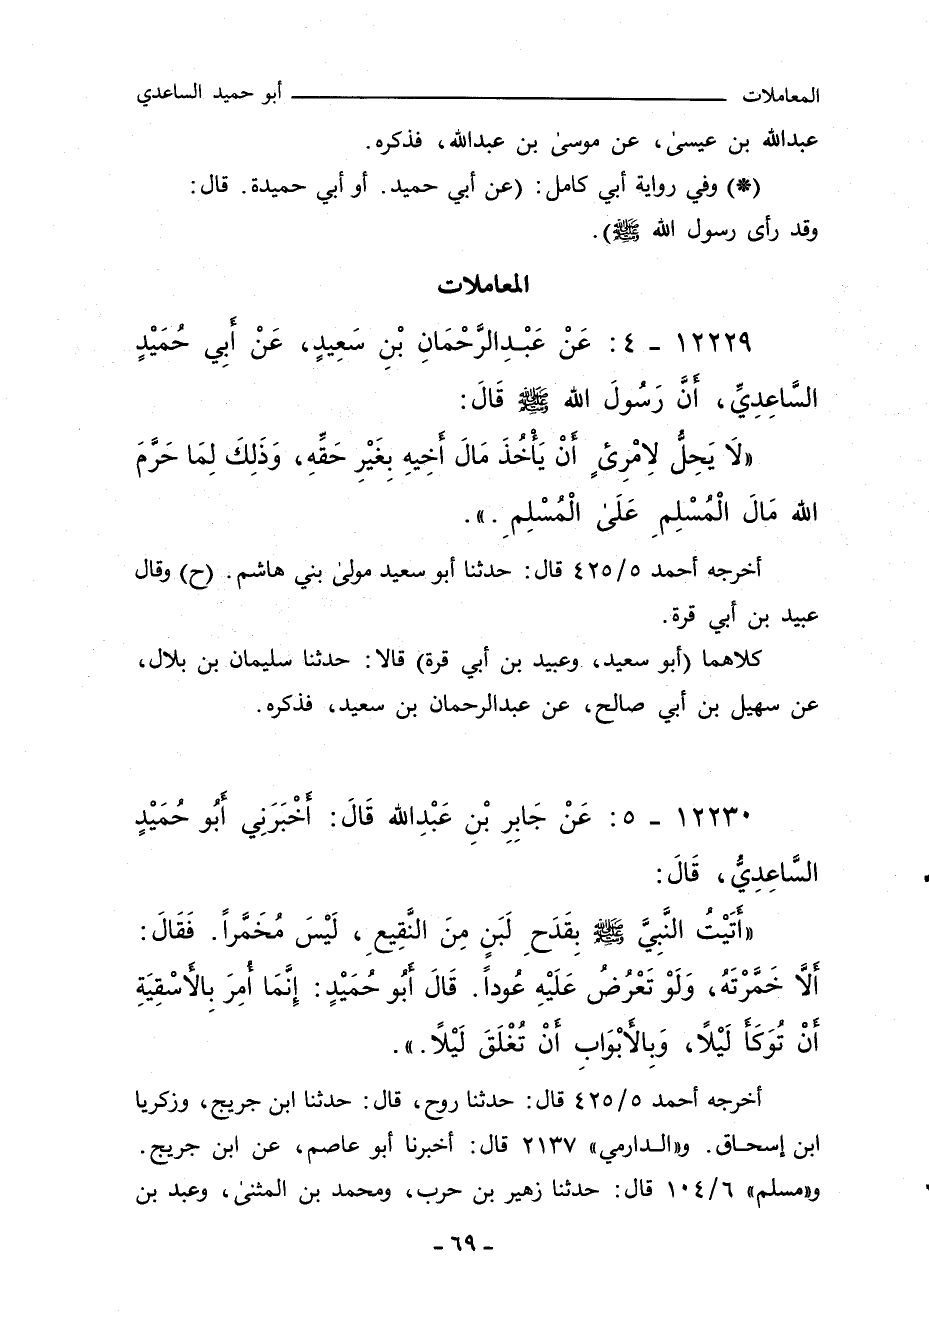 المعاملات ــــــــــــــــــــــــــــــ أبو حميد الساعدي
عبدالله بن عيسىٰ، عن موسىٰ بن عبدالله، فذكره.
(*) وفي رواية أبي كامل: (عن أبي حميد. أو أبي حميدة. قال:
وقد رأى رسول الله ﷺ).
المعاملات
١٢٢٢٩ ـ ٤: عَنْ عَبْدِالرَّحْمَانِ بْنِ سَعِيدٍ، عَنْ أَبِي حُمَيْدٍ
السَّاعِدِيِّ، أَنَّ رَسُولَ الله ﷺ قَالَ:
«لَا يَحِلُّ لِامْرِئٍ أَنْ يَأْخُذَ مَالَ أَخِيهِ بِغَيْرِ حَقِّهِ، وَذَلِكَ لِمَا حَرَّمَ
الله مَالَ الْمُسْلِمِ عَلَىٰ الْمُسْلِمِ.».
أخرجه أحمد ٤٢٥/٥ قال: حدثنا أبو سعيد مولىٰ بني هاشم. (ح) وقال
عبيد بن أبي قرة.
كلاهما (أبو سعيد، وعبيد بن أبي قرة) قالا: حدثنا سليمان بن بلال،
عن سهيل بن أبي صالح، عن عبدالرحمان بن سعيد، فذكره.
١٢٢٣٠ ـ ٥: عَنْ جَابِرِ بْنِ عَبْدِالله قَالَ: أَخْبَرَنِي أَبُو حُمَيْدٍ
السَّاعِدِيُّ، قَالَ:
«أَتَيْتُ النَّبِيَّ ﷺ بِقَدَحِ لَبَنٍ مِنَ النَّقِيعِ، لَيْسَ مُخَمَّراً. فَقَالَ:
أَلَّا خَمَّرْتَهُ، وَلَوْ تَعْرُضُ عَلَيْهِ عُوداً. قَالَ أَبُو حُمَيْدٍ: إِنَّمَا أُمِرَ بِالأَسْقِيَةِ
أَنْ تُوكَأَ لَيْلًا، وَبِالأَبْوَابِ أَنْ تُغْلَقَ لَيْلًا.».
أخرجه أحمد ٤٢٥/٥ قال: حدثنا روح، قال: حدثنا ابن جريج، وزكريا
ابن إسحاق. و«الدارمي» ٢١٣٧ قال: أخبرنا أبو عاصم، عن ابن جريج.
و«مسلم» ١٠٤/٦ قال: حدثنا زهير بن حرب، ومحمد بن المثنىٰ، وعبد بن
ـ ٦٩ ـ